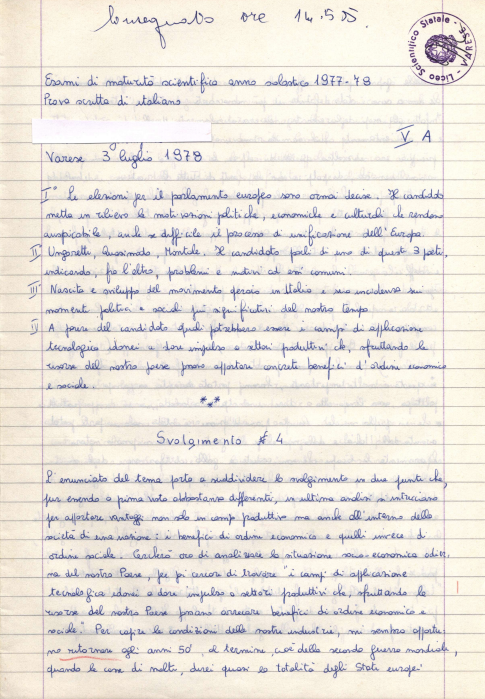 Consegnato ore 14.55
Liceo Scientifico Statale - VARESE
Esami di maturità scientifica anno scolastico 1977-78
Prova scritta di italiano
V A
Varese 3 luglio 1978
I° Le elezioni per il parlamento europeo sono ormai decise. Il candidato
metta in rilievo le motivazioni politiche, economiche e culturali che rendono
auspicabile, anche se difficile il processo di unificazione dell'Europa.
II° Ungaretti, Quasimodo, Montale. Il candidato parli di uno di questi 3 poeti,
indicando, fra l'altro, problemi e motivi ad essi comuni.
III° Nascita e sviluppo del movimento operaio in Italia e sua incidenza sui
momenti politici e sociali più significativi del nostro tempo.
IV A parere del candidato quali potrebbero essere i campi di applicazione
tecnologica idonei a dare impulso a settori produttivi che, sfruttando le
risorse del nostro paese possano apportare concreti benefici d'ordine economico
e sociale.
***
Svolgimento # 4
L'enunciato del tema porta a suddividere lo svolgimento in due punti che,
pur essendo a prima vista abbastanza differenti, in ultima analisi si intrecciano
per apportare vantaggi non solo in campo produttivo ma anche all'interno della
società di una nazione: i benefici di ordine economico e quelli invece di
ordine sociale. Cercherò ora di analizzare la situazione socio-economica odier-
na del nostro Paese, per poi cercare di trovare "i campi di applicazione
tecnologica idonei a dare impulso a settori produttivi che, sfruttando le
risorse del nostro Paese possano arrecare benefici di ordine economico e
sociale." Per capire le condizioni delle nostre industrie, mi sembra opportu-
no ritornare agli anni 50', al termine, cioè della seconda guerra mondiale,
quando le case di molti, direi quasi la totalità degli Stati europei